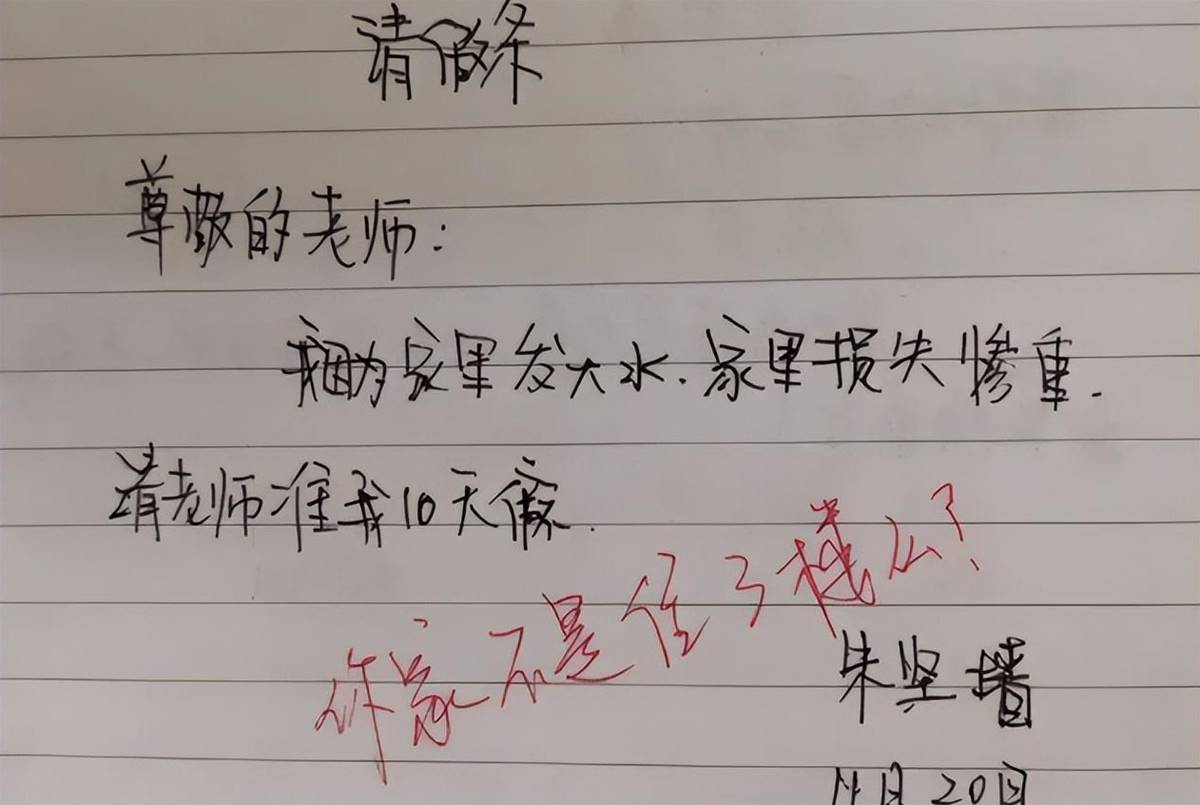 请假条
尊敬的老师：
我因为家里发大水.家里损失惨重.
请老师准我10天假.
你家不是住3楼么？
朱坚墙
11月20日